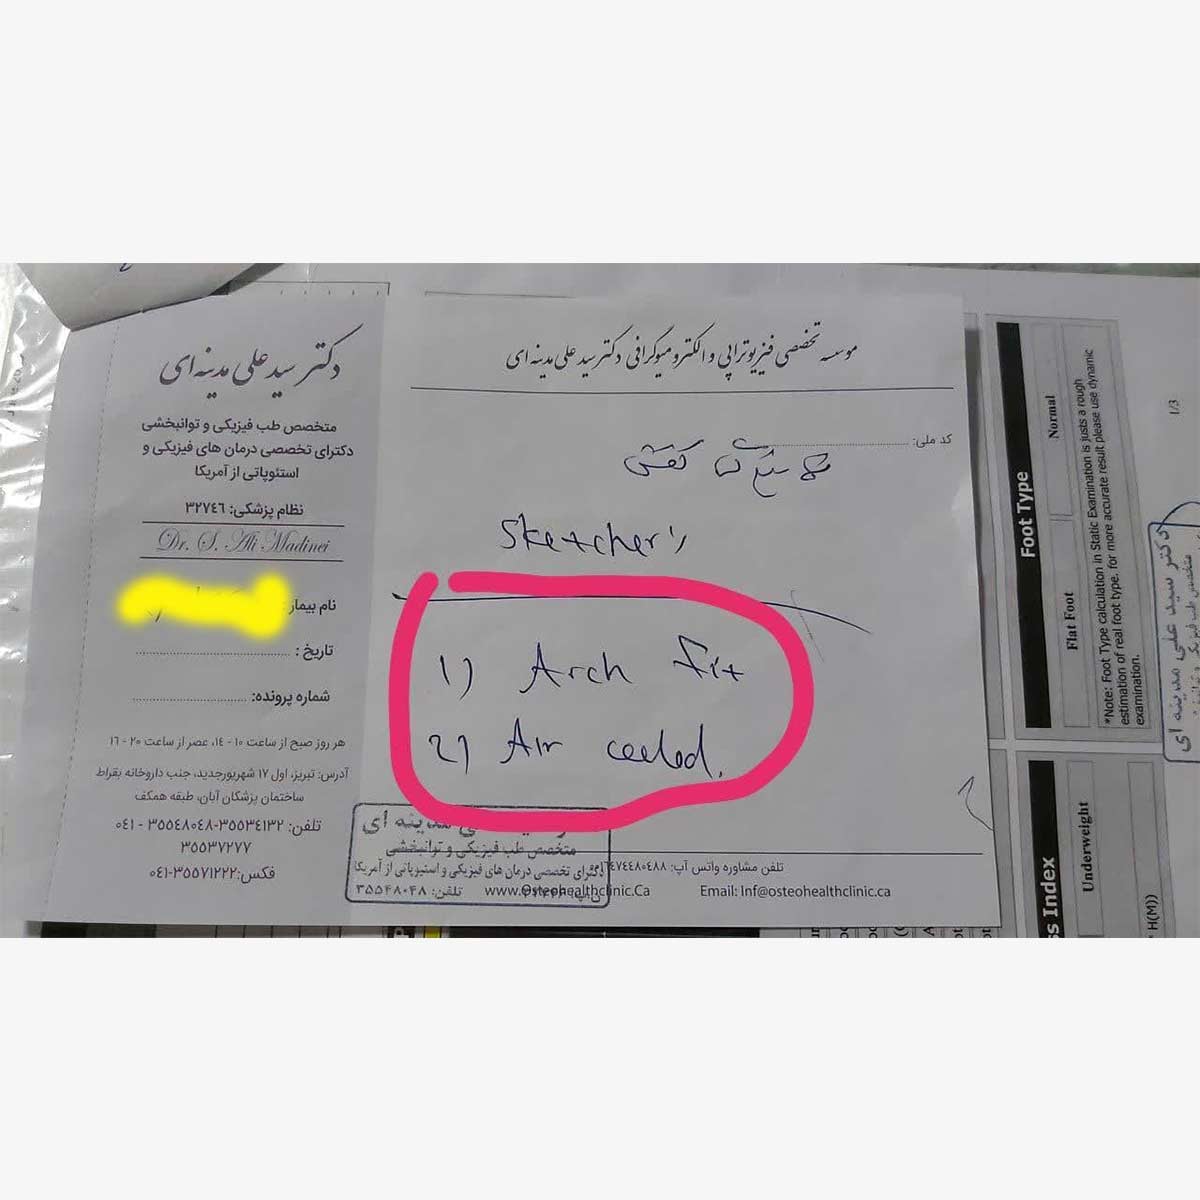 موسسه تخصصی فیزیوتراپی و الکترومیوگرافی دکتر سید علی مدینه ای
کد ملی:
کفش
Sketcher's
1) Arch fit
2) Air cooled.
تلفن مشاوره واتس آپ:
Email: Inf@osteohealthclinic.ca
www.Osteohealthclinic.Ca
دکتر سید علی مدینه ای
متخصص طب فیزیکی و توانبخشی
دکترای تخصصی درمان های فیزیکی و
استئوپاتی از آمریکا
نظام پزشکی: ۳۲۷۴۶
Dr. S. Ali Madinei
نام بیمار
تاریخ :
شماره پرونده:
هر روز صبح از ساعت ۱۰ - ۱۴، عصر از ساعت ۲۰ - ۱۶
آدرس: تبریز، اول ۱۷ شهریورجدید، جنب داروخانه بقراط
ساختمان پزشکان آبان، طبقه همکف
تلفن: ۳۵۵۳۴۱۳۲-۳۵۵۴۸۰۴۸ - ۰۴۱
۳۵۵۳۷۲۷۷
فکس:۳۵۵۷۱۲۲۲-۰۴۱
مدینه ای
متخصص طب فیزیکی و توانبخشی
دکترای تخصصی درمان های فیزیکی و استیوپاتی از آمریکا
تلفن: ۳۵۵۴۸۰۴۸
Foot Type
Normal
Flat Foot
*Note: Foot Type calculation in Static Examination is justs a rough
estimation of real foot type. for more accurate result please use dynamic
examination.
1/3
ss Index
Underweight
H(M))
دکتر سید علی مدینه ای